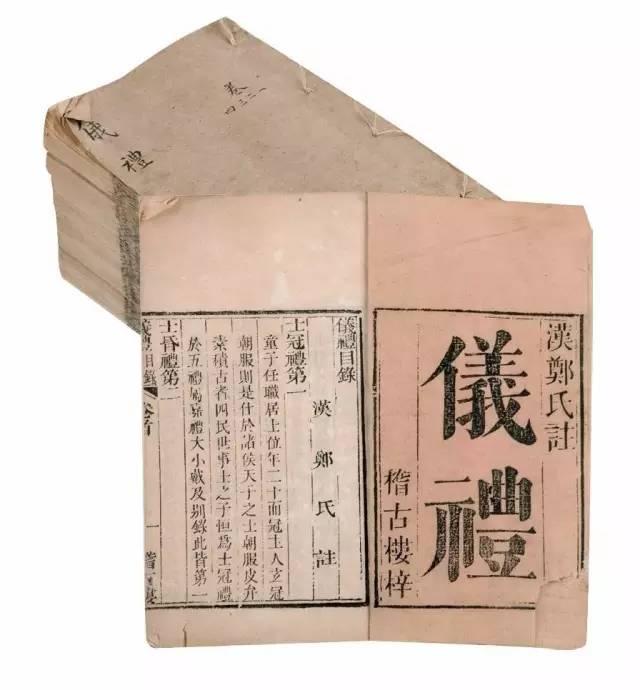 儀禮
卷一二三四
漢鄭氏註
儀禮
稽古樓梓
儀禮目錄
漢鄭氏註
士冠禮第一
童子任職居士位年二十而冠主人玄冠
朝服則是仕於諸侯天子之士朝服皮弁
素積古者四民世事士之子恒爲士冠禮
於五禮屬嘉禮大小戴及別錄此皆第一
士昏禮第二
儀禮目錄 卷首 一